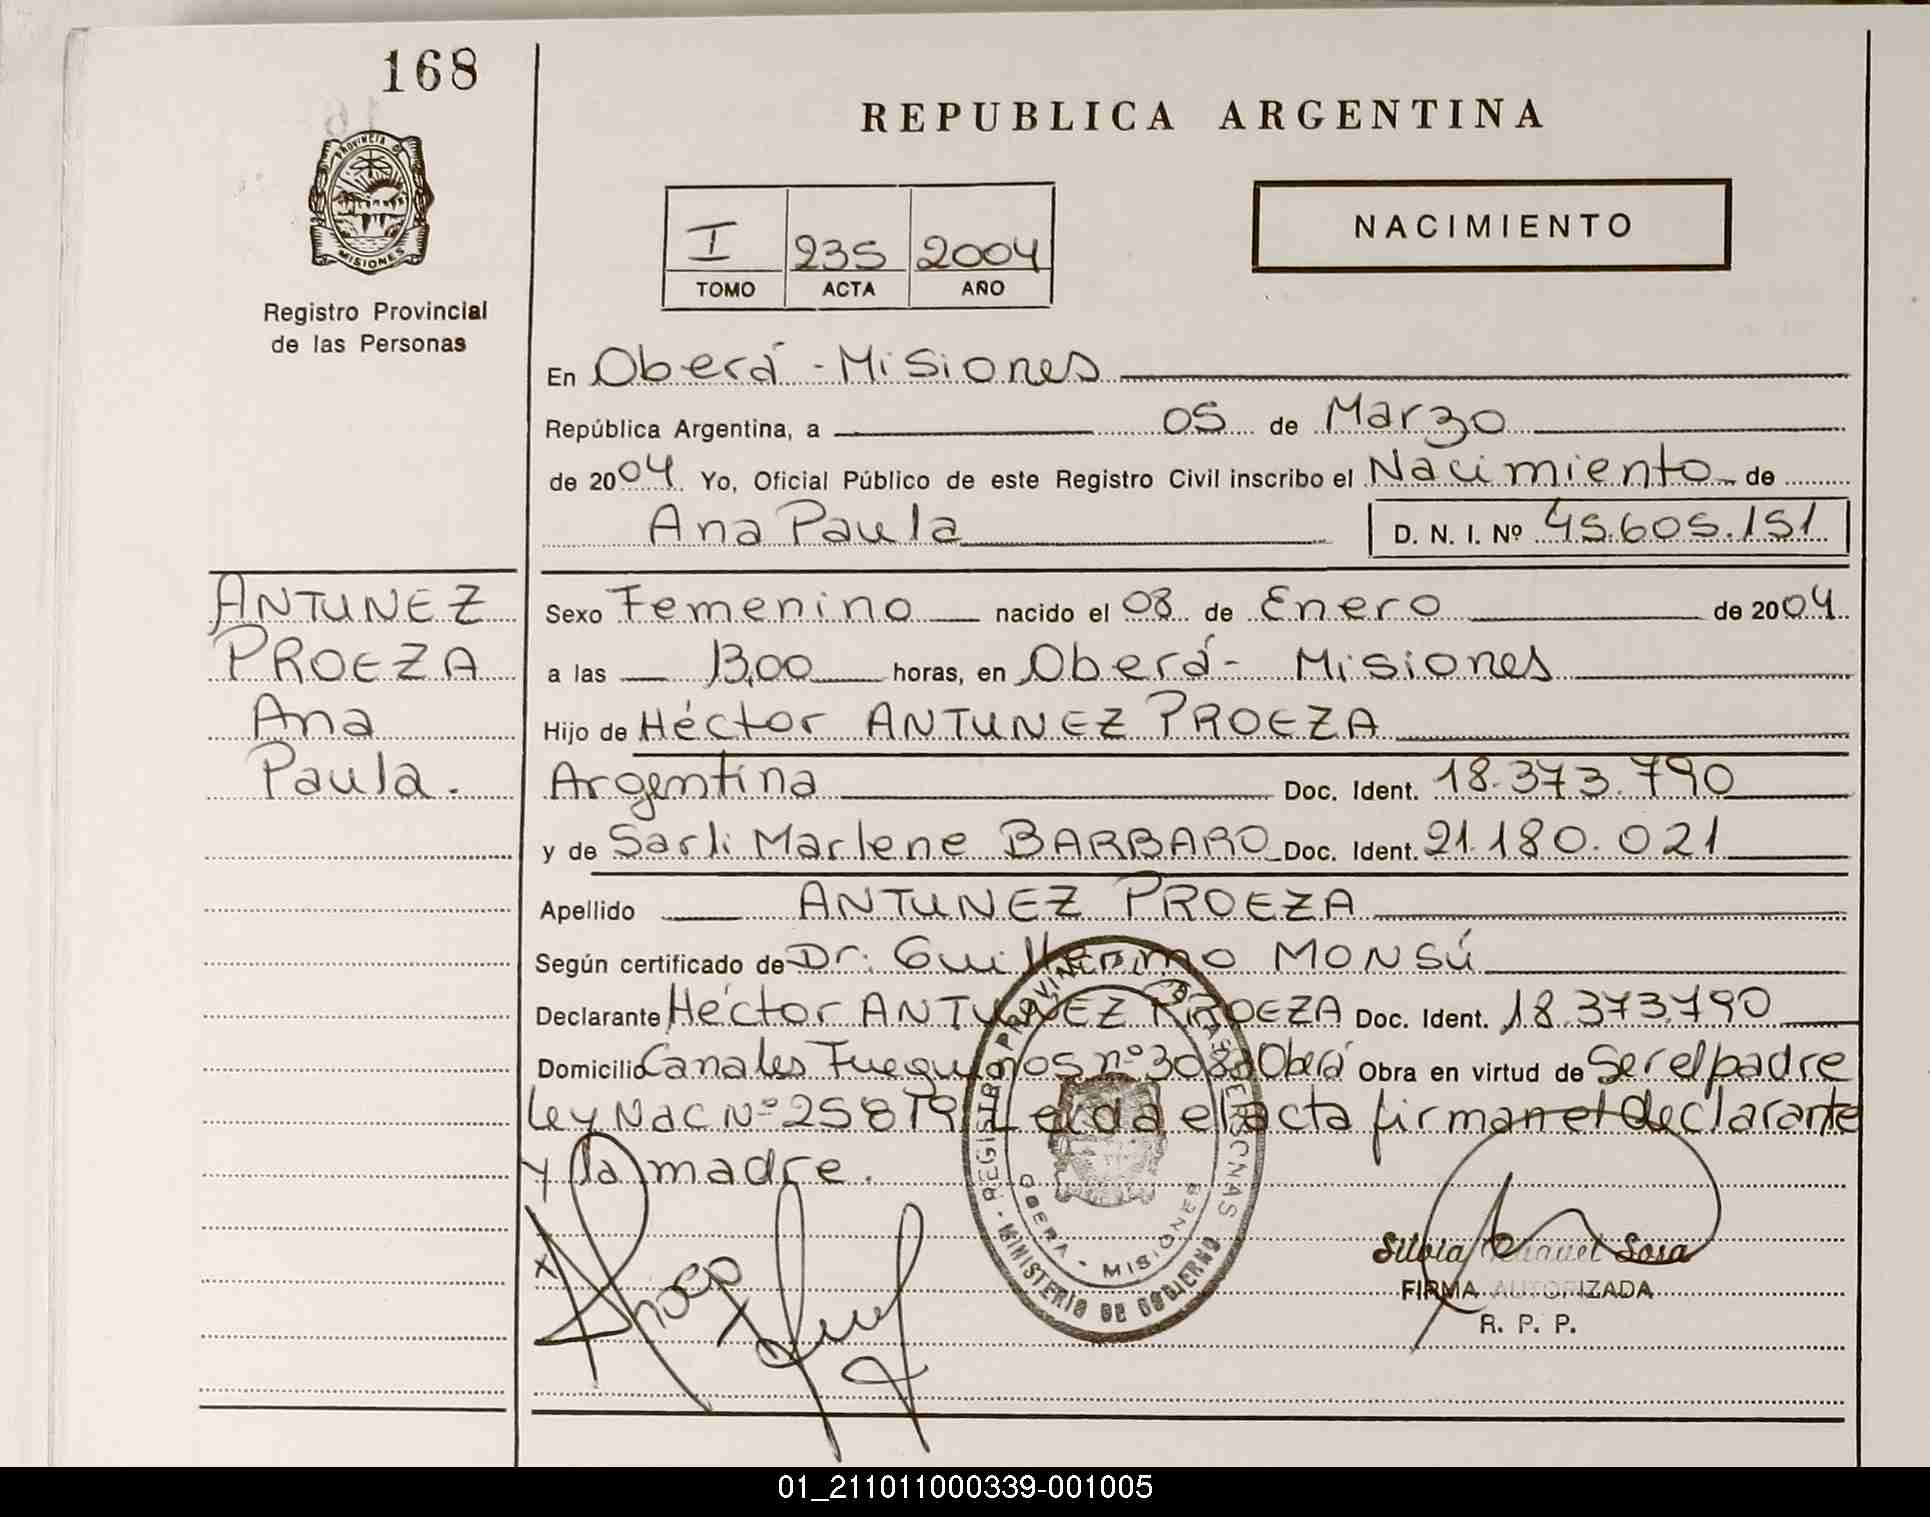 168
REPUBLICA ARGENTINA
PROVINCIA DE
MISIONES
Registro Provincial
de las Personas
NACIMIENTO
I 235 2004
TOMO ACTA AÑO
En Oberá - Misiones
República Argentina, a 05 de Marzo
de 2004 Yo, Oficial Público de este Registro Civil inscribo el Nacimiento de
Ana Paula D. N. I. Nº 45.605.151
ANTUNEZ
PROEZA
Ana
Paula.
Sexo Femenino nacido el 08 de Enero de 2004
a las 13,00 horas, en Oberá - Misiones
Hijo de Héctor ANTUNEZ PROEZA
Argentina Doc. Ident. 18.373.790
y de Sarli Marlene BARBARO Doc. Ident. 21.180.021
Apellido ANTUNEZ PROEZA
Según certificado de Dr. Guillermo MONSÚ
Declarante Héctor ANTUNEZ PROEZA Doc. Ident. 18.373.790
Domicilio Canales Fueguinos nº 3083 Oberá Obra en virtud de Ser el padre
Ley Nac Nº 25819 Leida el acta firman el declarante
y la madre.
REGISTRO PROVINCIAL DE LAS PERSONAS
OBERA - MISIONES
MINISTERIO DE GOBIERNO
Silvia Raquel Sosa
FIRMA AUTORIZADA
R. P. P.
01_211011000339-001005